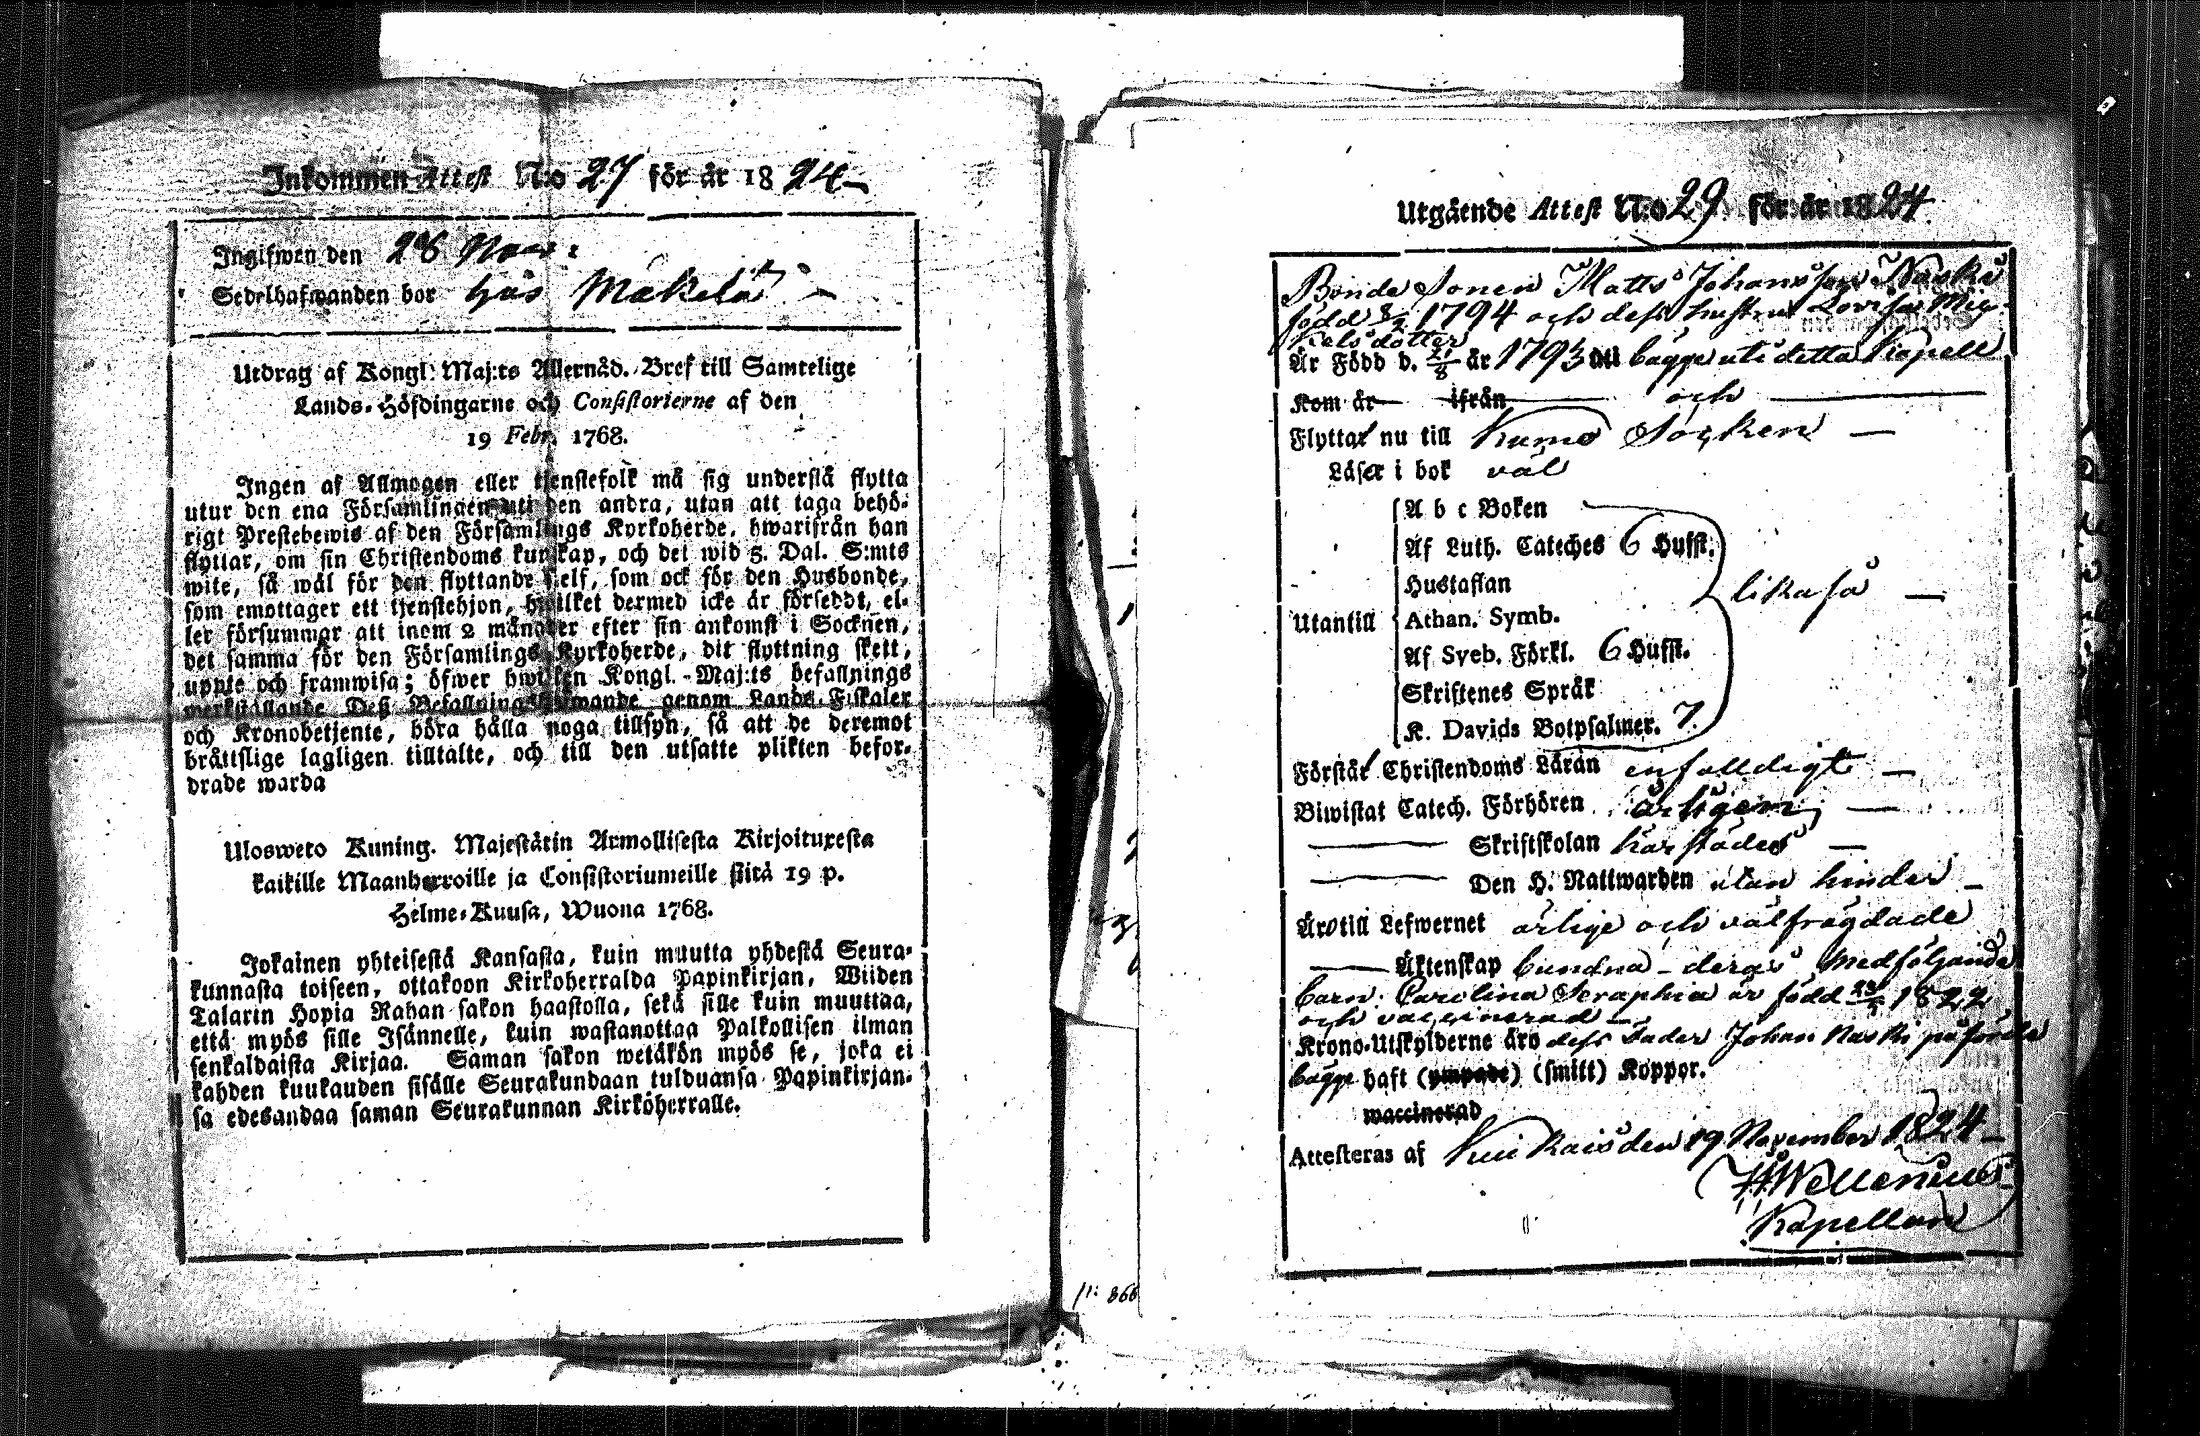 Inkommen Attest N:o 27 för år 1824
Ingifwen den 28 Nov:
Sedelhafwanden bor hos Mäkelä
Utdrag af Kongl. Maj:ts Allernåd. Bref till Samtelige
Lands-Höfdingarne och Consistorierne af den
19 Febr. 1768.
Ingen af Allmogen eller tjenstefolk må sig understå flytta
utur den ena Församlingen uti den andra, utan att taga behö-
rigt Prestebewis af den Församlings Kyrkoherde, hwarifrån han
flyttar, om sin Christendoms kunskap, och det wid 5. Dal. S:mts
wite, så wäl för den flyttande sielf, som ock för den Husbonde,
som emottager ett tjenstehjon, hwilket dermed icke är försedt, el-
ler försummar att inom 2 månader efter sin ankomst i Socknen,
det samma för den Församlings Kyrkoherde, dit flyttning skett,
uppte och framwisa; öfwer hwilken Kongl. Maj:ts befallnings
werkställande Deß Befallningshafwande genom Lands-Fiskaler
och Kronobetjente, böra hålla noga tillsyn, så att de deremot
bråttslige lagligen tilltalte, och till den utsatte plikten befor-
drade warda
Ulosweto Kuning. Majestätin Armollisesta Kirjoituxesta
kaikille Maanherroille ja Consistoriumeille siitä 19 p.
Helme-Kuusa, Wuona 1768.
Jokainen yhteisestä Kansasta, kuin muutta yhdestä Seura-
kunnasta toiseen, ottakoon Kirkoherralda Papinkirjan, Wiiden
Talarin Hopia Rahan sakon haastolla, sekä sille kuin muuttaa,
että myös sille Isännelle, kuin wastanottaa Palkollisen ilman
senkaldaista Kirjaa. Saman sakon wetäkön myös se, joka ei
kahden kuukauden sisälle Seurakundaan tulduansa Papinkirjan-
sa edesandaa saman Seurakunnan Kirköherralle.
Utgående Attest N:o 29 för år 1824
Bonde Sonen Matts Johansson Naski
född 8/2 1794 och dess hustru Lovisa Mic-
kelsdotter
Är Född d. 21/8 år 1793 till bägge uti detta Kapell
Kom år ifrån och
Flyttar nu till Kumo Socken
Läser i bok väl
A b c Boken
Af Luth. Cateches 6 Hufst.
Hustaflan
likaså
Utantill Athan. Symb.
Af Sveb. Förkl. 6 Hufst.
Skriftenes Språk
K. Davids Botpsalmer. 7.
Förstår Christendoms Läran enfalldigt
Biwistat Catech. Förhören årligen
Skriftskolan härstädes
Den H. Nattwarden utan hinder
Äro till Lefwernet ärlige och välfrägdade
Äktenskap bundna – deras Medföljande
barn: Carolina Seraphia är född 1822
och vaccinerad
Krono-Utskylderne äro dess Fader Johan Naski påförde
bägge haft (ympade) (smitt) Koppor.
waccinerad
Attesteras af Kiukais den 19 November 1824
Wellenius
Kapellan